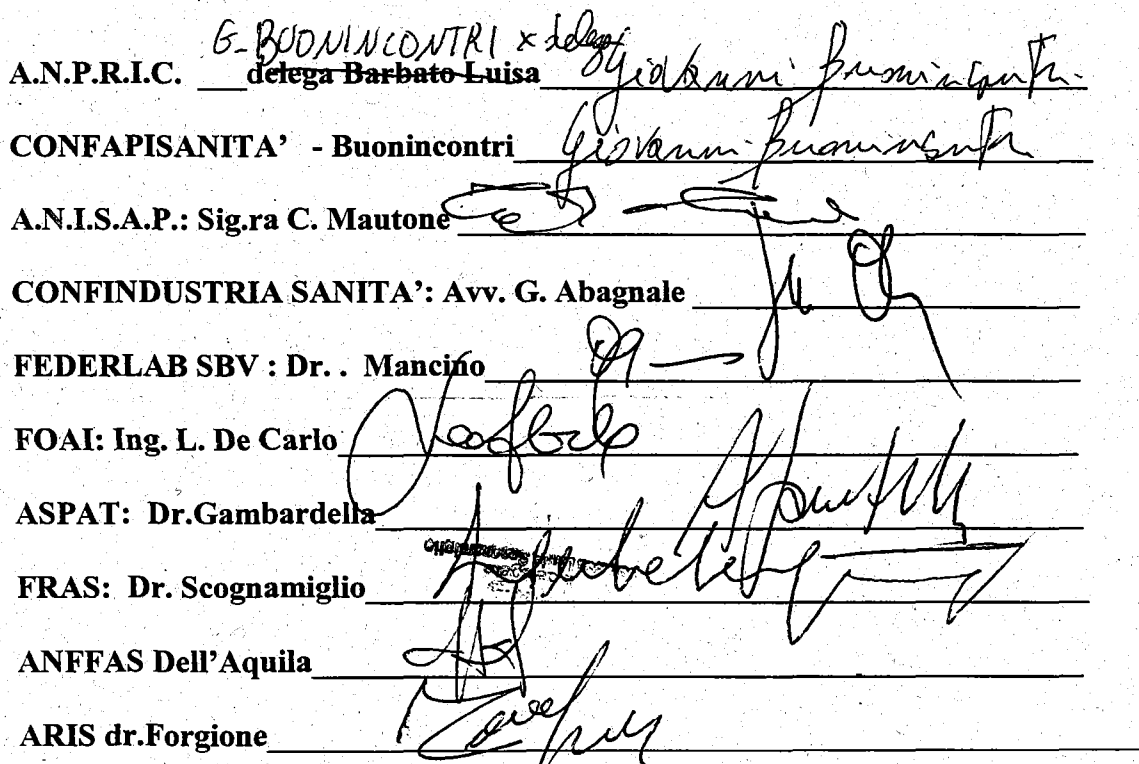 G. BUONINCONTRI x delega
A.N.P.R.I.C. delega Barbato Luisa Giovanni Buonincontri
CONFAPISANITA' - Buonincontri Giovanni Buonincontri
A.N.I.S.A.P.: Sig.ra C. Mautone
CONFINDUSTRIA SANITA': Avv. G. Abagnale
FEDERLAB SBV : Dr. . Mancino
FOAI: Ing. L. De Carlo
ASPAT: Dr.Gambardella
FRAS: Dr. Scognamiglio
ANFFAS Dell'Aquila
ARIS dr.Forgione